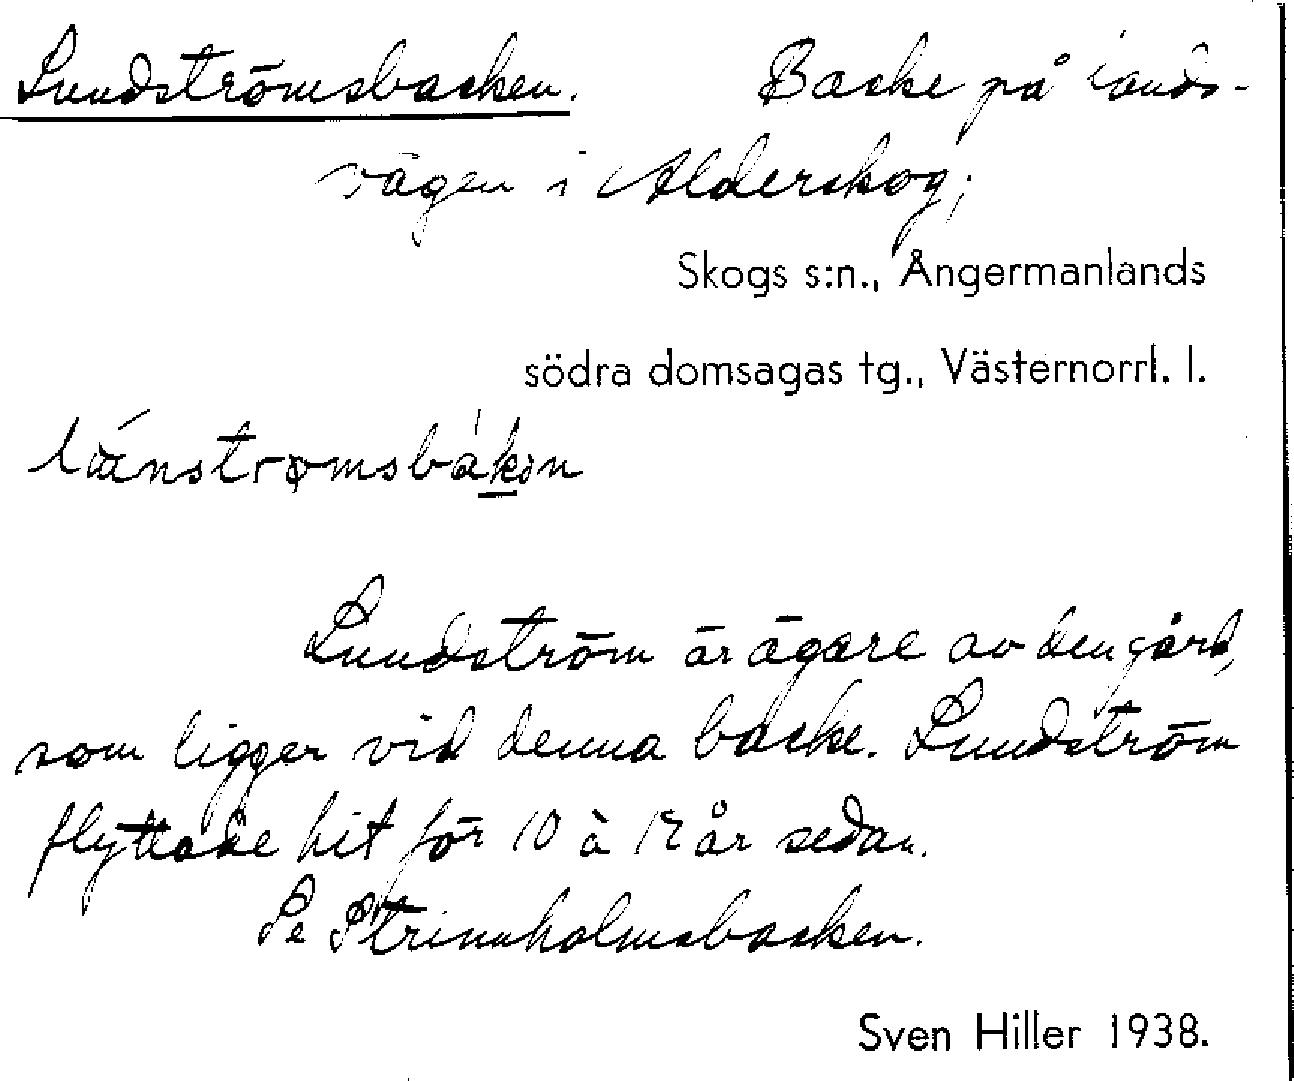 Lundströmsbacken. Backe på lands-
vägen i Alderskog,
Skogs s:n., Ångermanlands
södra domsagas tg., Västernorrl. l.
Lundström är ägare av den gård,
som ligger vid denna backe. Lundström
flyttade hit för 10 à 12 år sedan.
Se Strinnholmsbacken.
Sven Hiller 1938.